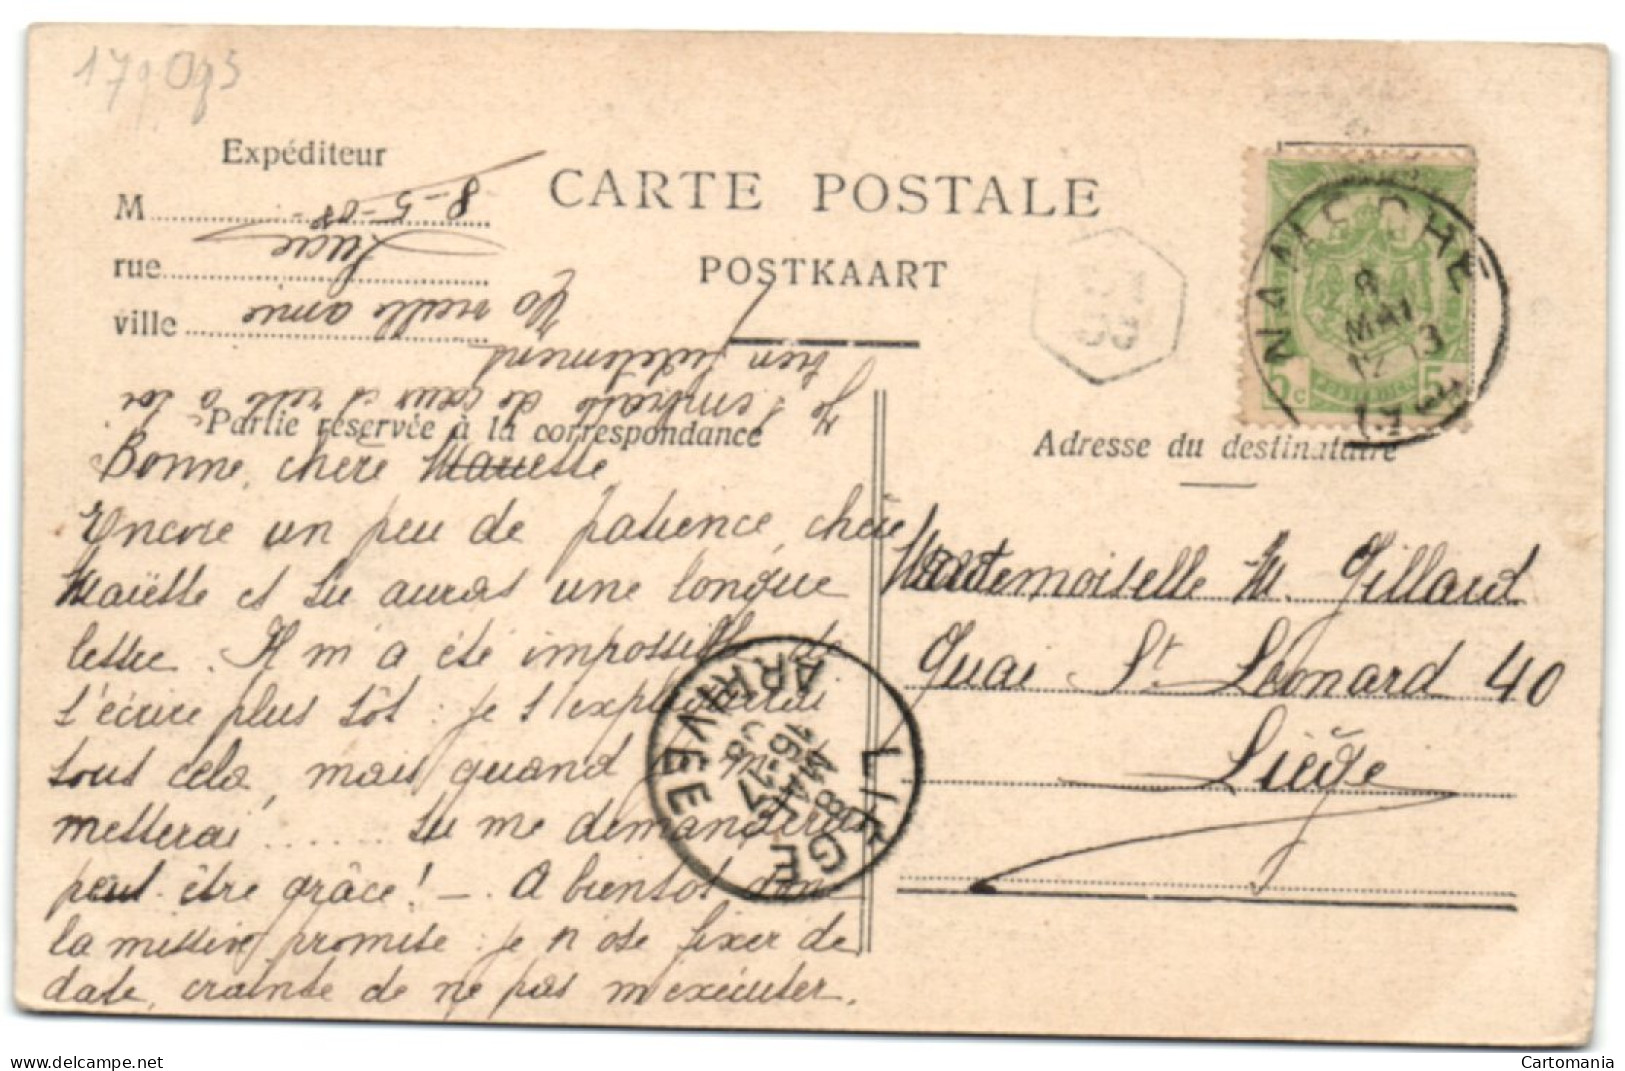 Expéditeur
M
rue
ville
CARTE POSTALE
POSTKAART
Partie réservée à la correspondance
Adresse du destinataire
Bonne, chère Mariette,
Encore un peu de patience, chère
Mariette et tu auras une longue
lettre. Il m'a été impossible de
t'écrire plus tôt : je t'expliquerai
tout cela, mais quand je m'y
metterai ...... tu me demanderas
peut-être grâce! - A bientôt donc
la missive promise : je n'ose fixer de
date, crainte de ne pas m'exécuter.
Je t'embrasse de cœur et reste à toi
bien fidèlement
Ta vieille amie
Lucie
8-5-08-
Mademoiselle M. Gillard
Quai St Léonard 40
Liège
NAMECHE
8
MAI
LIEGE
ARRIVEE
8
MAI
16-17
08
5c
5
Cartomania